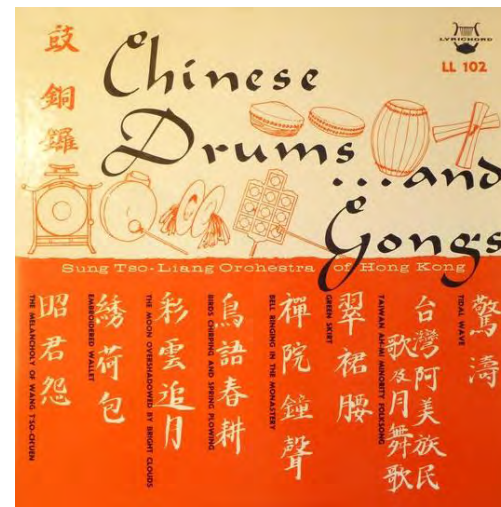 鼓銅鑼
Chinese
Drums
...and
Gongs
LYRICHORD
LL 102
Sung Tso-Liang Orchestra of Hong Kong
驚濤
TIDAL WAVE
台灣阿美族民
歌及月舞歌
TAIWAN AH-MI MINORITY FOLKSONG
翠裙腰
GREEN SKIRT
禪院鐘聲
BELL RINGING IN THE MONASTERY
鳥語春耕
BIRDS CHIRPING AND SPRING PLOWING
彩雲追月
THE MOON OVERSHADOWED BY BRIGHT CLOUDS
綉荷包
EMBROIDERED WALLET
昭君怨
THE MELANCHOLY OF WANG TS'O-CH'UEN